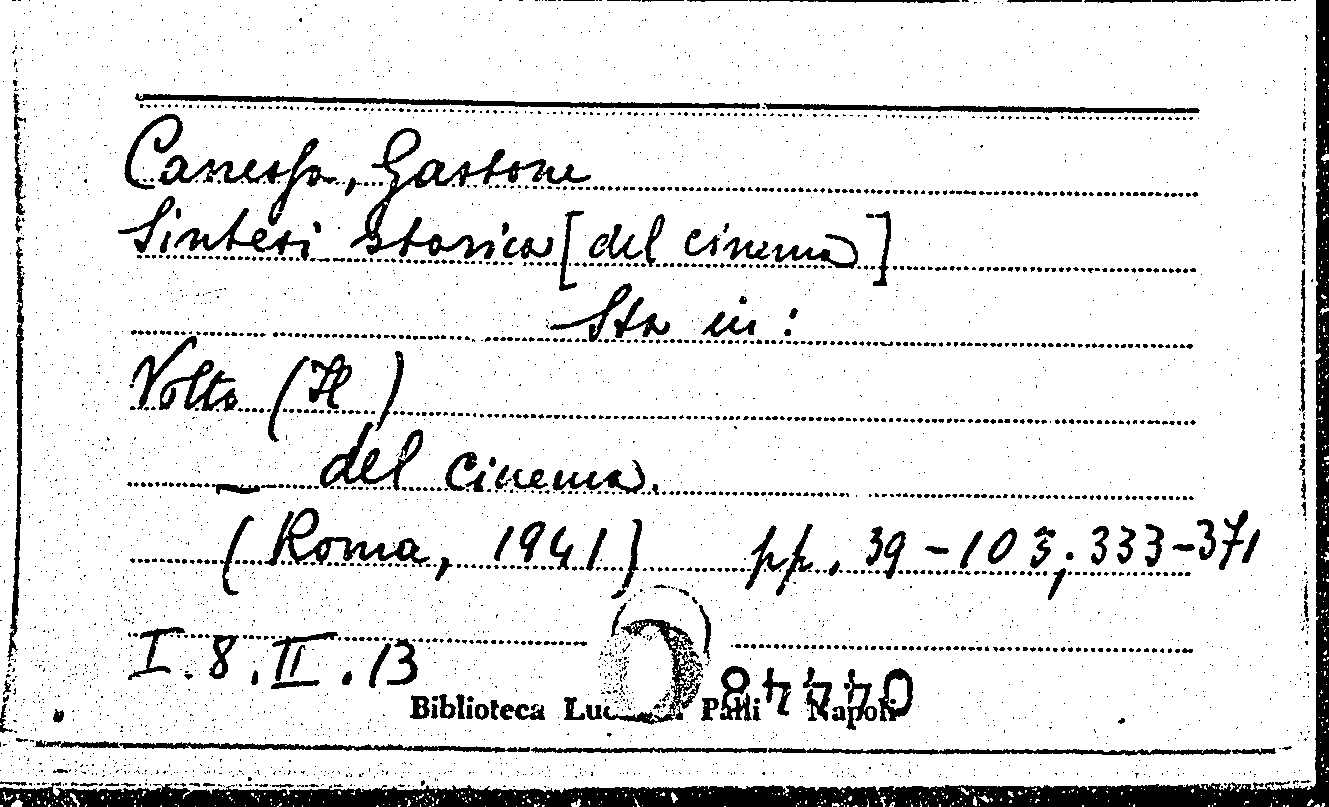 Canessa, Gastone
Sintesi storica [del cinema]
Sta in:
Volto (Il)
— del cinema.
(Roma, 1941) pp. 39-103; 333-371
I.8.II.13
04448
Biblioteca Palli Napoli